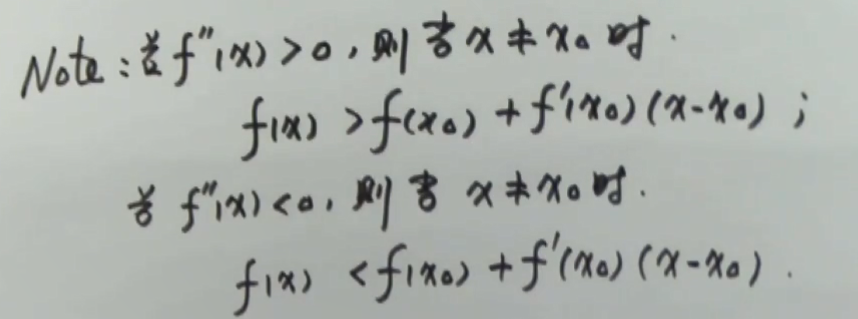 Note: 若 f''(x) > 0, 则当 x ≠ x₀ 时.
f(x) > f(x₀) + f'(x₀)(x-x₀) ;
若 f''(x) < 0, 则当 x ≠ x₀ 时.
f(x) < f(x₀) + f'(x₀)(x-x₀) .